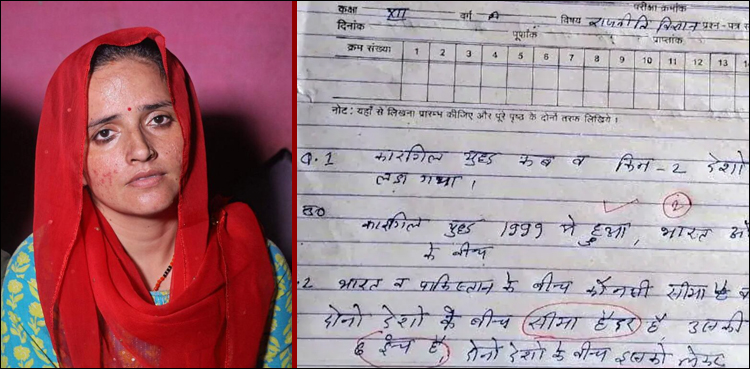 परीक्षा क्रमांक
कक्षा XII वर्ग विषय राजनीति विज्ञान प्रश्न-पत्र
दिनांक पूर्णांक प्राप्तांक
क्रम संख्या 1 2 3 4 5 6 7 8 9 10 11 12 13
नोट: यहाँ से लिखना प्रारम्भ कीजिए और पूरे पृष्ठ के दोनों तरफ लिखिये ।
Q.1 कारगिल युद्ध कब व किन-2 देशो
लडा गया ।
कारगिल युद्ध 1999 मे हुआ, भारत
के बीच
.2 भारत व पाकिस्तान के बीच कौनसी सीमा है
दोनो देशो के बीच सीमा हैदर है, उसकी
6 इंच है, दोनो देशो के बीच इसको लेकर